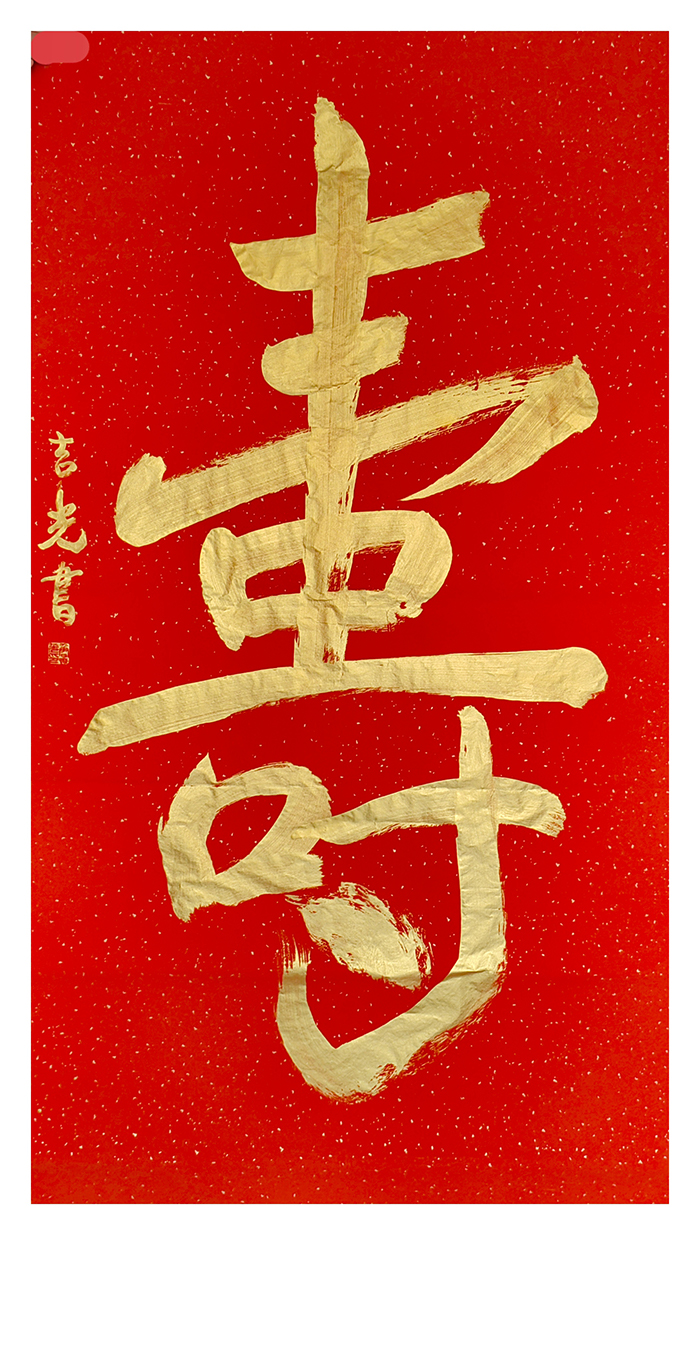 壽
吉光書